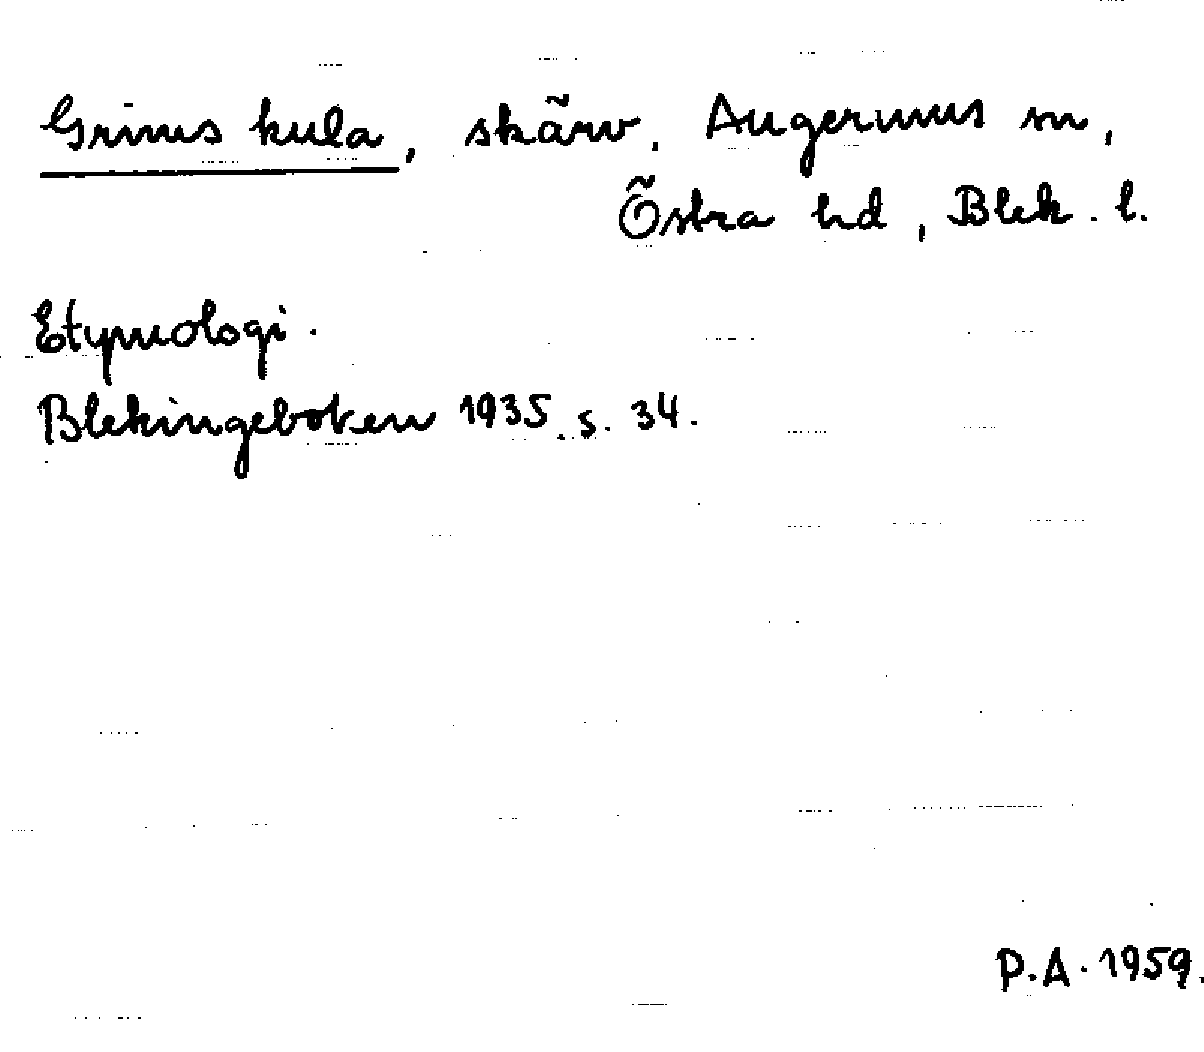 Grims kula, skärv. Augerums sn,
Östra hd, Blek. l.
Etymologi.
Blekingeboken 1935. s. 34.
P.A. 1959.